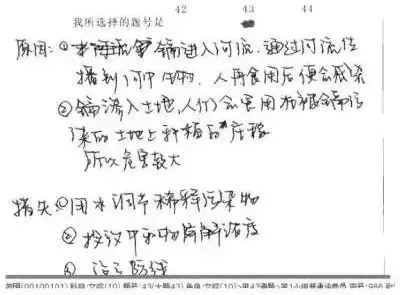 42 43 44
我所选择的题号是
原因:①镉进入河流.通过河流传
播到河中生物,人再食用后便会感染
②镉渗入土地,人们会食用被镉污
染的土地上种植的庄稼
所以危害较大
措失①用水调节稀释污染物
②投放中和物降解浓度
③设立防线